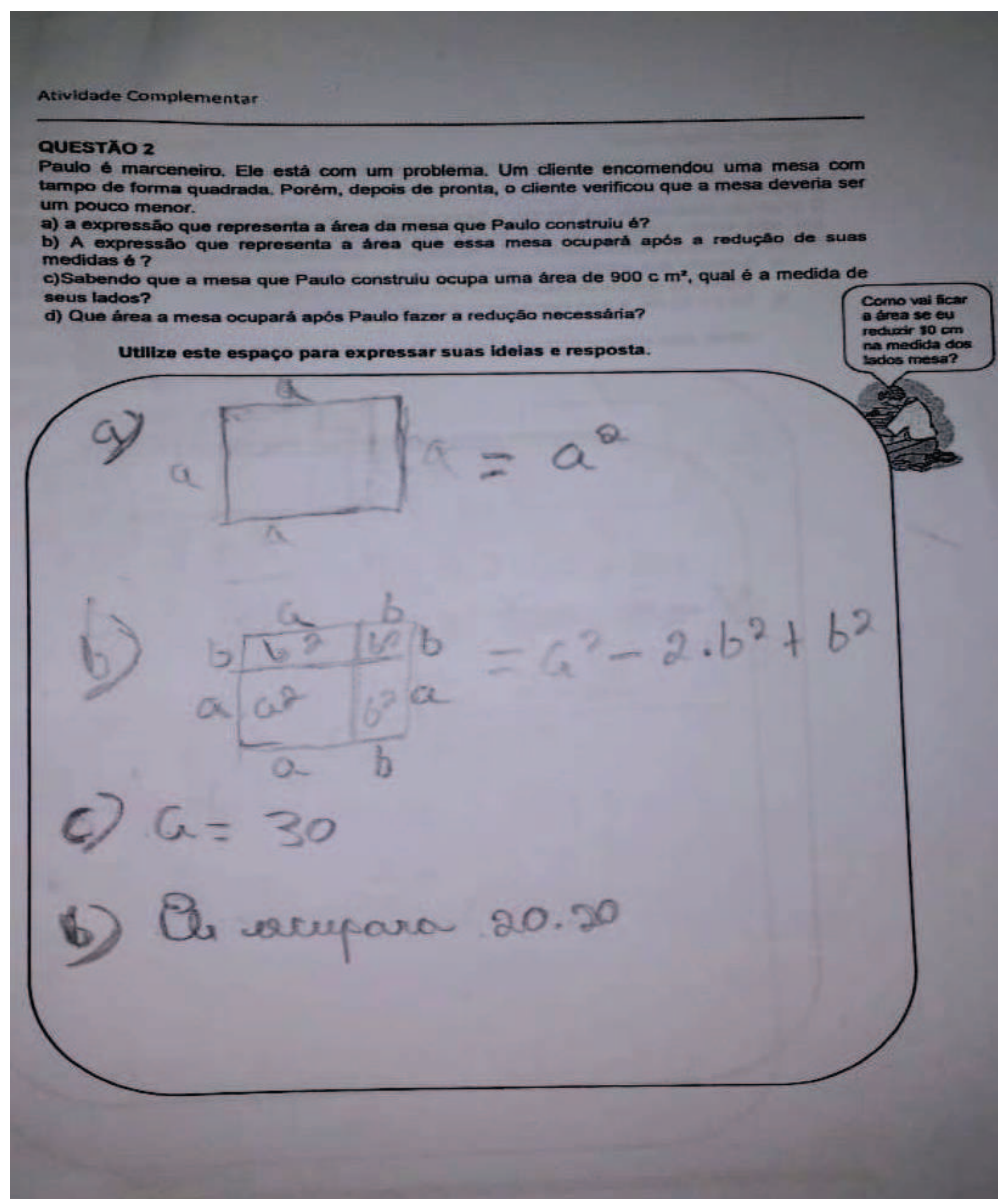 Atividade Complementar
QUESTÃO 2
Paulo é marceneiro. Ele está com um problema. Um cliente encomendou uma mesa com
tampo de forma quadrada. Porém, depois de pronta, o cliente verificou que a mesa deveria ser
um pouco menor.
a) a expressão que representa a área da mesa que Paulo construiu é?
b) A expressão que representa a área que essa mesa ocupará após a redução de suas
medidas é ?
c)Sabendo que a mesa que Paulo construiu ocupa uma área de 900 c m², qual é a medida de
seus lados?
d) Que área a mesa ocupará após Paulo fazer a redução necessária?
Como vai ficar
a área se eu
reduzir 10 cm
na medida dos
lados mesa?
Utilize este espaço para expressar suas ideias e resposta.
a
a) a a = a²
a
a b
b) b b² b² b = a² - 2.b² + b²
a a² b² a
a b
c) a = 30
b) ocupara 20.20